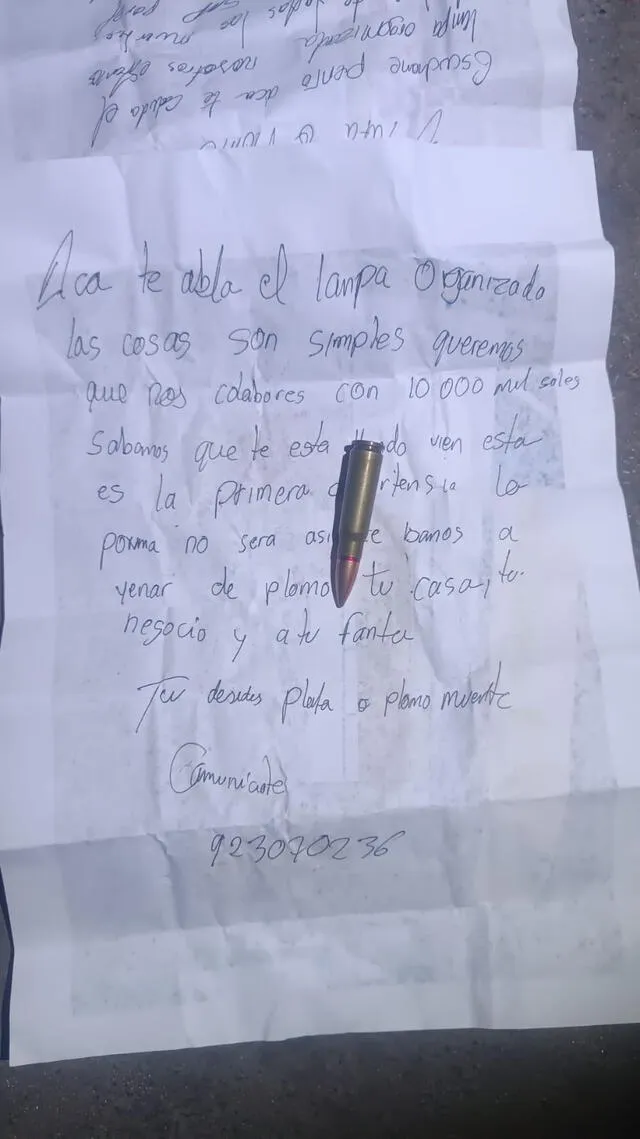 Escuchame pento aca te canda el
lanpa organizada nosotros estamo
Aca te abla el lanpa Organizado
las cosas son simples queremos
que nos colabores con 10 000 mil soles
Sabamos que te esta do vien esta
es la primera rtensia la
poxma no sera asi te banos a
yenar de plomo tu casa, tu
negocio y a tu fanta
Tu desides plata o plomo muerte
Camuniate
923070236